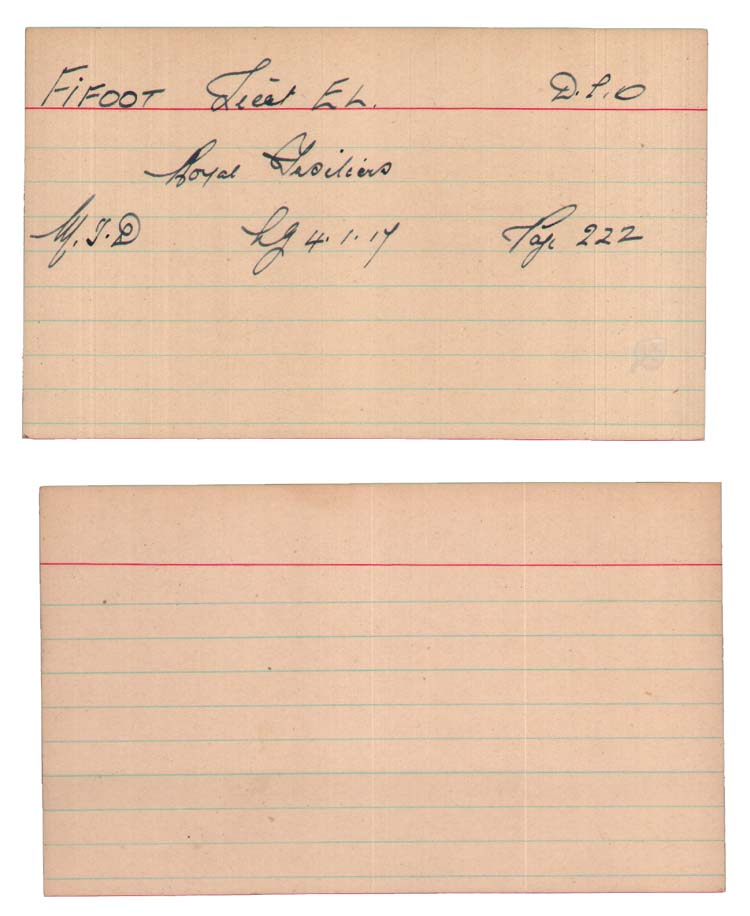 FIFOOT Lieut E L. D.S.O
Royal Fusiliers
M.I.D LG 4.1.17 Page 222